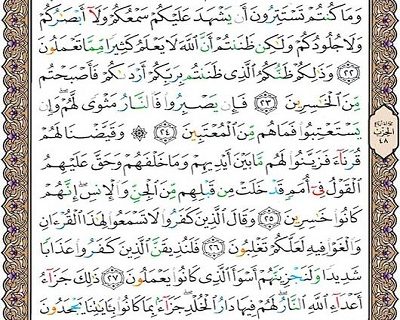 وَمَا كُنتُمْ تَسْتَتِرُونَ أَن يَشْهَدَ عَلَيْكُمْ سَمْعُكُمْ وَلَا أَبْصَارُكُمْ
وَلَا جُلُودُكُمْ وَلَٰكِن ظَنَنتُمْ أَنَّ اللَّهَ لَا يَعْلَمُ كَثِيرًا مِّمَّا تَعْمَلُونَ
﴿٢٢﴾ وَذَٰلِكُمْ ظَنُّكُمُ الَّذِي ظَنَنتُم بِرَبِّكُمْ أَرْدَاكُمْ فَأَصْبَحْتُم
مِّنَ الْخَاسِرِينَ ﴿٢٣﴾ فَإِن يَصْبِرُوا فَالنَّارُ مَثْوًى لَّهُمْ وَإِن
يَسْتَعْتِبُوا فَمَا هُم مِّنَ الْمُعْتَبِينَ ﴿٢٤﴾ ۞ وَقَيَّضْنَا لَهُمْ
قُرَنَاءَ فَزَيَّنُوا لَهُم مَّا بَيْنَ أَيْدِيهِمْ وَمَا خَلْفَهُمْ وَحَقَّ عَلَيْهِمُ
الْقَوْلُ فِي أُمَمٍ قَدْ خَلَتْ مِن قَبْلِهِم مِّنَ الْجِنِّ وَالْإِنسِ إِنَّهُمْ
كَانُوا خَاسِرِينَ ﴿٢٥﴾ وَقَالَ الَّذِينَ كَفَرُوا لَا تَسْمَعُوا لِهَٰذَا الْقُرْآنِ
وَالْغَوْا فِيهِ لَعَلَّكُمْ تَغْلِبُونَ ﴿٢٦﴾ فَلَنُذِيقَنَّ الَّذِينَ كَفَرُوا عَذَابًا
شَدِيدًا وَلَنَجْزِيَنَّهُمْ أَسْوَأَ الَّذِي كَانُوا يَعْمَلُونَ ﴿٢٧﴾ ذَٰلِكَ جَزَاءُ
أَعْدَاءِ اللَّهِ النَّارُ لَهُمْ فِيهَا دَارُ الْخُلْدِ جَزَاءً بِمَا كَانُوا بِآيَاتِنَا يَجْحَدُونَ
الحزب
٤٨